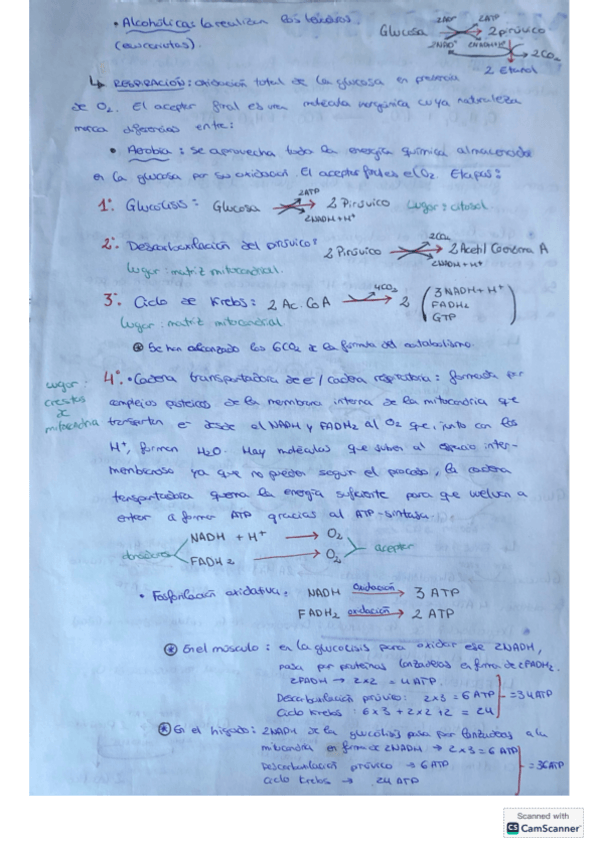 • Alcohólicas: la realizan las levaduras. Glucosa 2ATP 2 pirúvico
(eucariotas). 2NAD⁺ 2NADH+H⁺ 2CO₂
2 Etanol
↳ RESPIRACIÓN: oxidación total de la glucosa en presencia
de O₂. El aceptor final es una molécula inorgánica cuya naturaleza
marca diferencias entre:
• Aerobia: se aprovecha toda la energía química almacenada
en la glucosa por su oxidación. El aceptor final es el O₂ Etapas:
1º. Glucólisis: Glucosa 2ATP 2NADH+H⁺ 2 Pirúvico Lugar: citosol.
2º. Descarboxilación del pirúvico: 2 Pirúvico 2CO₂ 2NADH+H⁺ 2 Acetil Coenzima A
Lugar: matriz mitocondrial.
3º. Ciclo de Krebs: 2 Ac. CoA 4CO₂ 2 (3 NADH + H⁺ FADH₂ GTP)
Lugar: matriz mitocondrial
⊛ Se han alcanzado los 6CO₂ de la fórmula del catabolismo
Lugar: crestas de mitocondria
4º. • Cadena transportadora de e⁻/cadena respiratoria: formada por
complejos proteicos de la membrana interna de la mitocondria que
transportan e⁻ desde el NADH y FADH₂ al O₂ que, junto con los
H⁺, forman H₂O. Hay moléculas que suben al espacio inter-
membranoso ya que no pueden seguir el proceso, la cadena
transportadora genera la energía suficiente para que vuelvan a
entrar a formar ATP gracias al ATP-sintasa.
NADH + H⁺ → O₂
dadores aceptor
FADH₂ → O₂
• Fosforilación oxidativa: NADH oxidación 3 ATP
FADH₂ oxidación 2 ATP
⊛ En el músculo: en la glucólisis para oxidar ese 2NADH,
pasa por proteínas lanzaderas en forma de 2FADH₂.
2FADH → 2x2 = 4 ATP.
Descarboxilación pirúvico: 2x3 = 6 ATP = 34 ATP
Ciclo Krebs: 6x3 + 2x2 + 2 = 24
⊛ En el hígado: 2NADH de la glucólisis pasa por lanzaderas a la
mitocondria en forma de 2NADH → 2x3 = 6 ATP
Descarboxilación pirúvico → 6 ATP = 36 ATP
Ciclo Krebs → 24 ATP
Scanned with
CS CamScanner